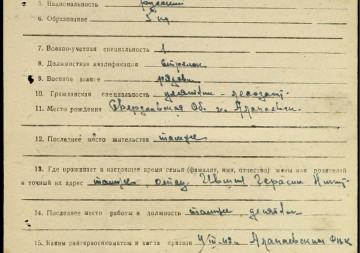 5. Национальность русский
6. Образование 5 кл
7. Военно-учетная специальность 1
8. Должностная квалификация стрелок
9. Военное звание рядов
10. Гражданская специальность десятник-
11. Место рождения Свердловская Об. Алапаевск
12. Последнее место жительства там же
13. Где проживает в настоящее время семья (фамилия, имя, отчество) жены или родителей
и точный их адрес там же, отец Герасим
14. Последнее место работы и должность там же, десятник
15. Каким райгорвоенкоматом и когда призван Алапаевским РВК